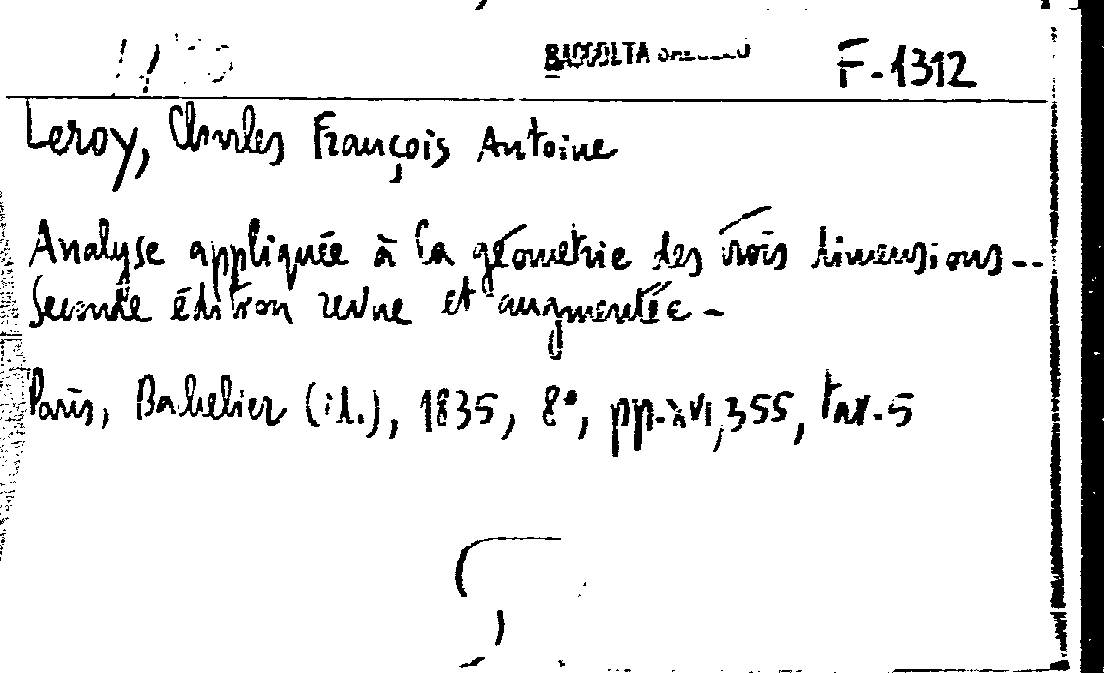 RACCOLTA
F-1312
Leroy, Charles François Antoine
Analyse appliquée à la géometrie des trois dimensions--
Seconde édition revue et augmentée-
Paris, Bachelier (id.), 1835, 8°, pp.XVI,355, tav.5